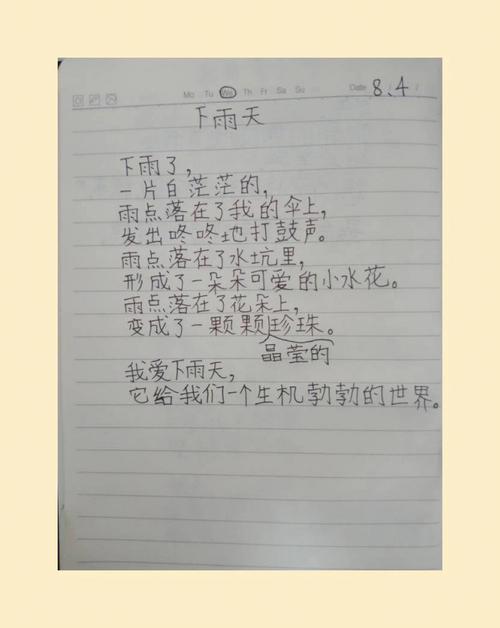 Mo Tu We Th Fr Sa Su Date 8.4
下雨天
下雨了,
一片白茫茫的,
雨点落在了我的伞上,
发出咚咚地打鼓声。
雨点落在了水坑里,
形成了一朵朵可爱的小水花。
雨点落在了花朵上,
变成了一颗颗珍珠。
晶莹的
我爱下雨天,
它给我们一个生机勃勃的世界。